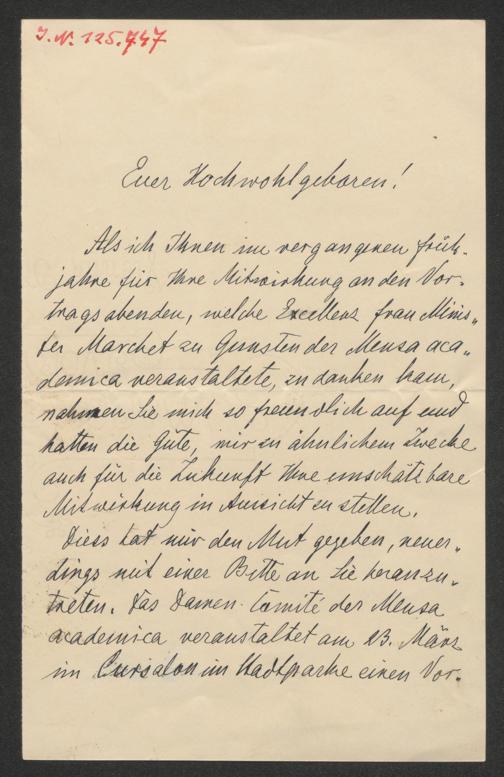 I.N. 125.747
Euer Hochwohlgeboren!
Als ich Ihnen im vergangenen Früh-
jahre für Ihre Mitwirkung an den Vor-
tragsabenden, welche Excellenz Frau Minis-
ter Marchet zu Gunsten der Mensa aca-
demica veranstaltete, zu danken kam,
nahmen Sie mich so freundlich auf und
hatten die Güte, mir zu ähnlichem Zwecke
auch für die Zukunft Ihre unschätzbare
Mitwirkung in Aussicht zu stellen.
Diess hat mir den Mut gegeben, neuer-
dings mit einer Bitte an Sie heranzu-
treten. Das Damen-Comité der Mensa
academica veranstaltet am 23. März
im Cursalon im Stadtparke einen Vor-